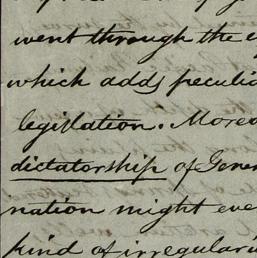 went through the
which adds peculia
legislation. Moreo
dictatorship of Gener
nation might eve
kind of irregulari